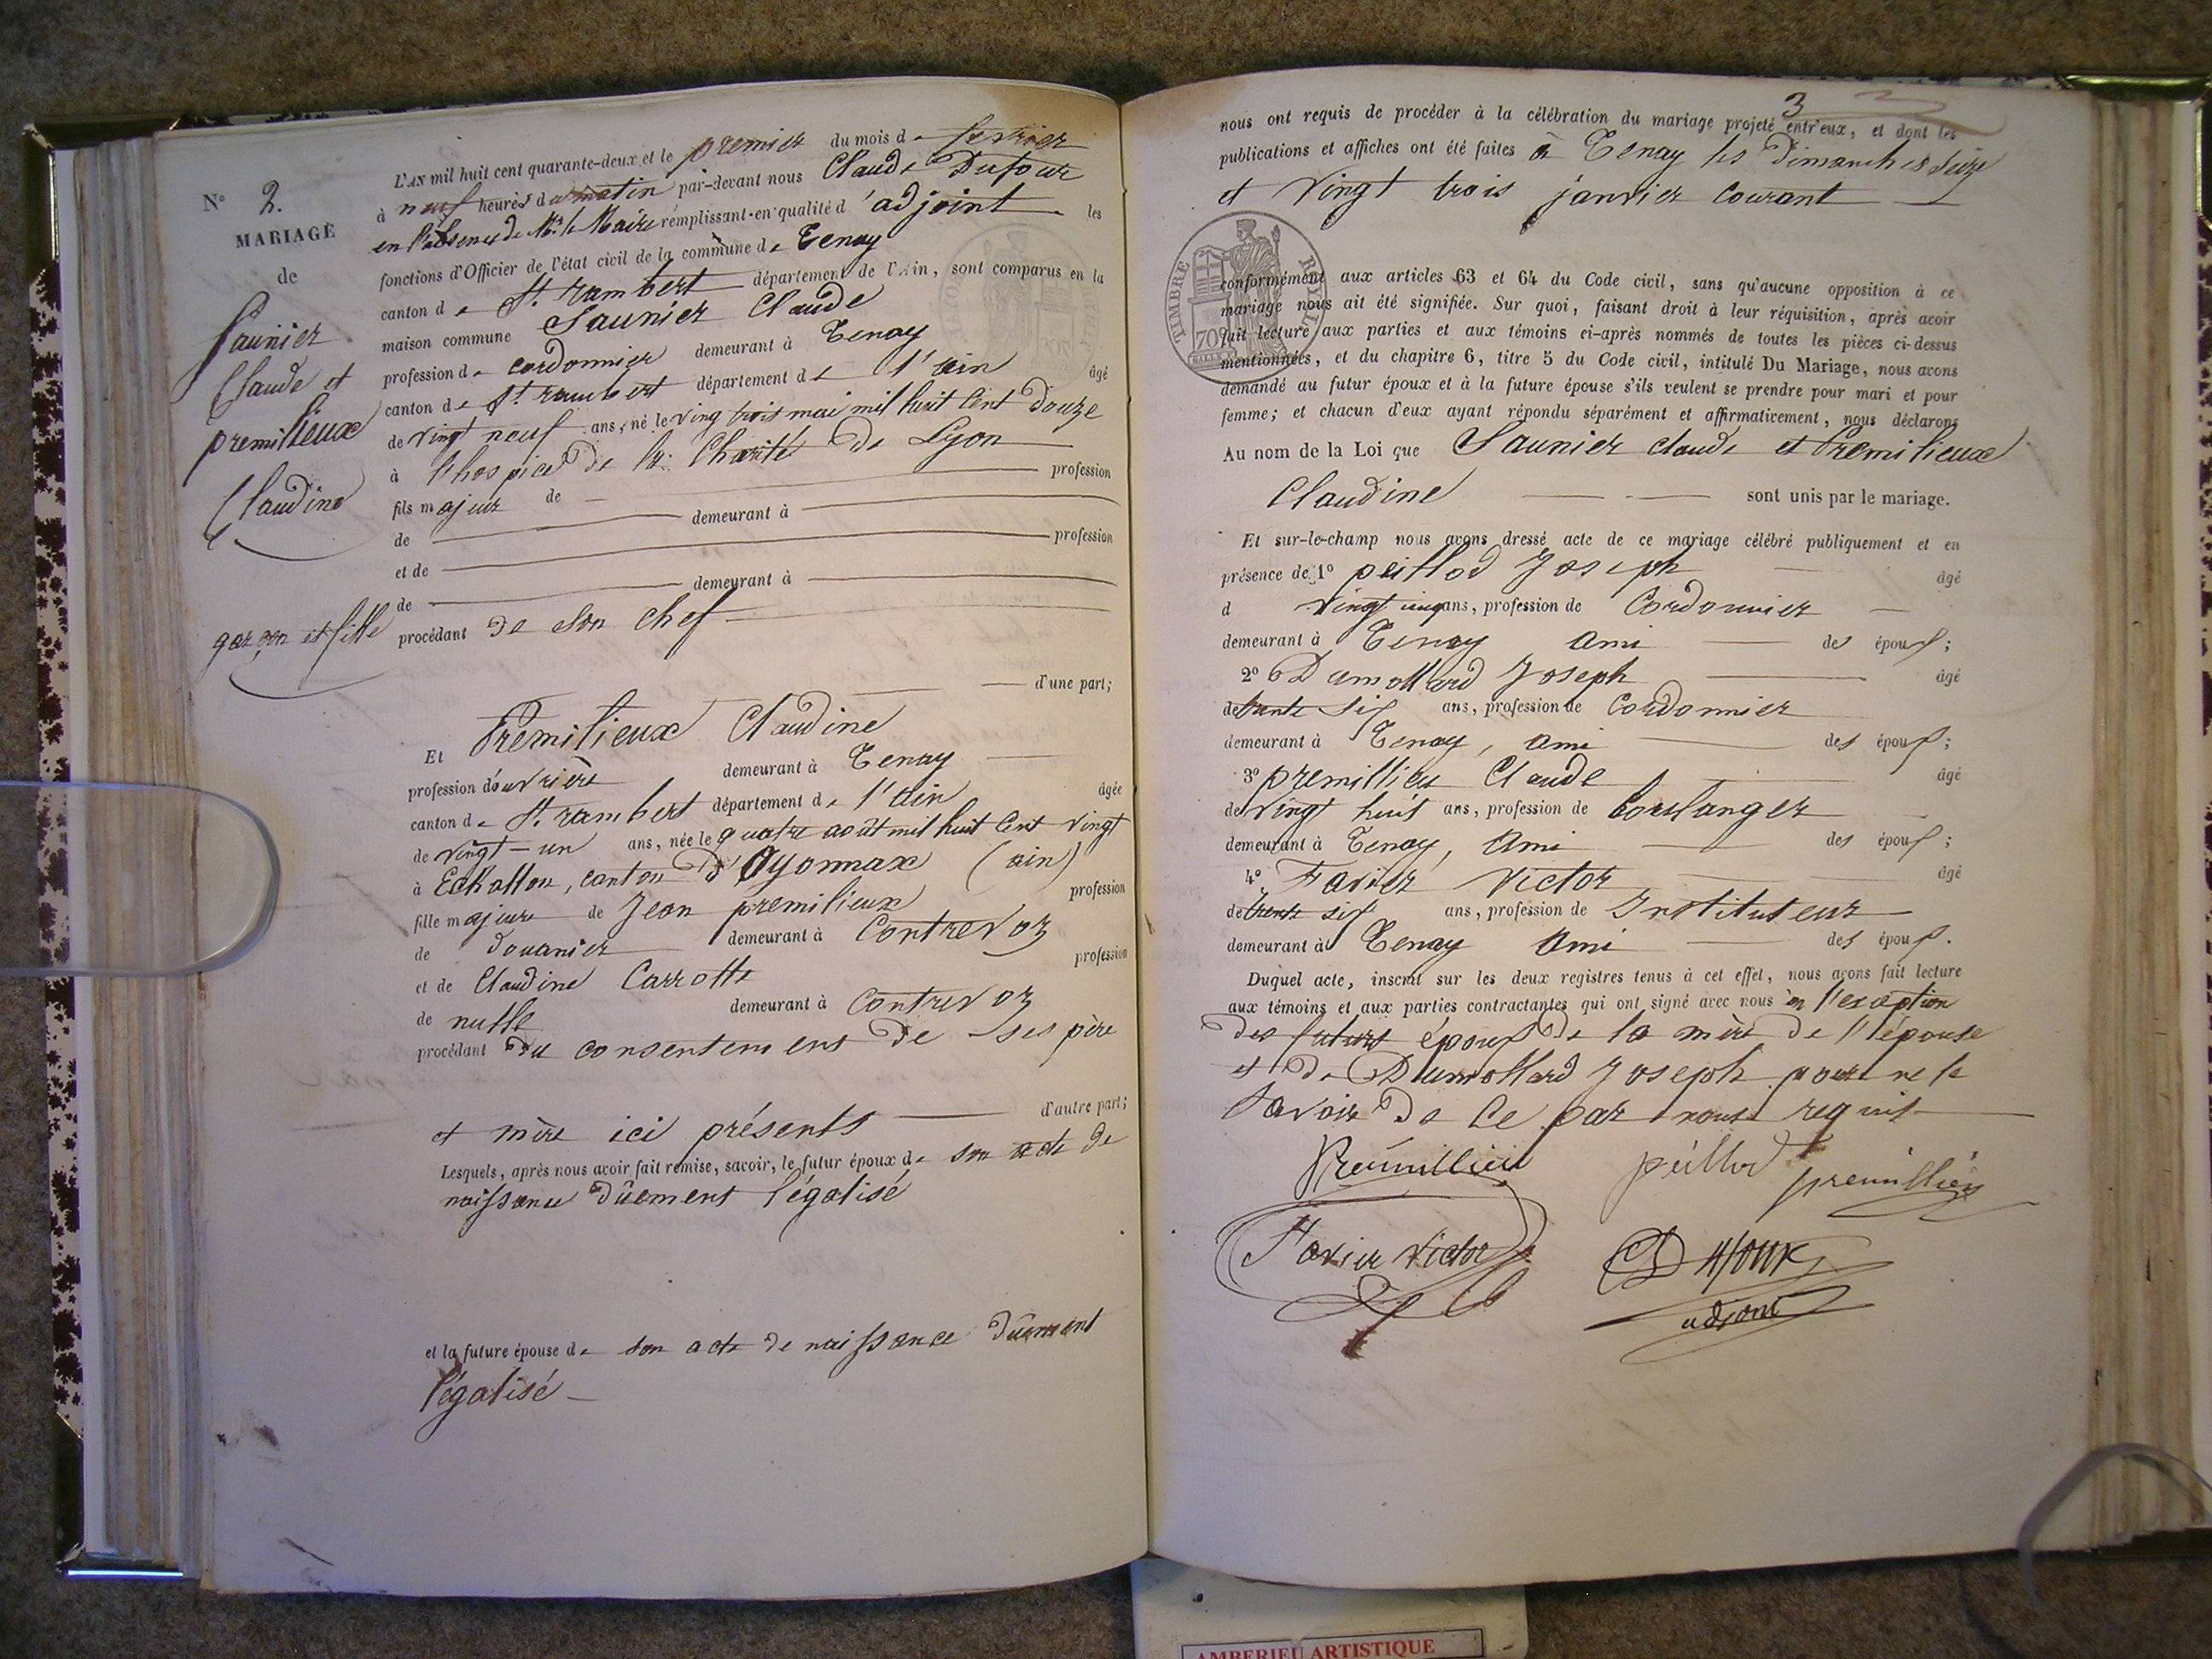 N° 2.
MARIAGE
de
Saunier
Claude et
premillieux
Claudine
garçon et fille
L'AN mil huit cent quarante-deux et le premier du mois de fevrier
à neuf heures du matin par-devant nous Claude Dufour
en l'absence de Mr le Maire remplissant en qualité d'adjoint les
fonctions d'Officier de l'état civil de la commune de Tenay
canton de St. rambert département de l'Ain, sont comparus en la
maison commune Saunier Claude
profession de cordonnier demeurant à Tenay
canton de St. rambert département de l'ain âgé
de vingt neuf ans, né le ving trois mai mil huit cent douze
à l'hospice de la Charité de Lyon
fils majeur de profession
de demeurant à
et de profession
de demeurant à
procédant de son chef
d'une part;
Et Premilieux Claudine
profession d'ouvrière demeurant à Tenay
canton de St. rambert département de l'ain âgée
de vingt-un ans, née le quatre août mil huit cent vingt
à Echallon, canton d'Oyonnax (ain)
fille majeure de Jean premilieux profession
de douanier demeurant à Contrevoz
et de Claudine Carrotte profession
de nulle demeurant à Contrevoz
procédant du consentement de ses père
et mère ici présents d'autre part;
Lesquels, après nous avoir fait remise, savoir, le futur époux de son acte de
naissance dûement légalisé
et la future épouse de son acte de naissance dûement
légalisé
3
nous ont requis de procéder à la célébration du mariage projeté entr'eux, et dont les
publications et affiches ont été faites à Tenay les dimanches seize
et vingt trois janvier courant
TIMBRE ROYAL
70
conformément aux articles 63 et 64 du Code civil, sans qu'aucune opposition à ce
mariage nous ait été signifiée. Sur quoi, faisant droit à leur réquisition, après avoir
fait lecture aux parties et aux témoins ci-après nommés de toutes les pièces ci-dessus
mentionnées, et du chapitre 6, titre 5 du Code civil, intitulé Du Mariage, nous avons
demandé au futur époux et à la future épouse s'ils veulent se prendre pour mari et pour
femme; et chacun d'eux ayant répondu séparément et affirmativement, nous déclarons
Au nom de la Loi que Saunier Claude et Premilieux
Claudine sont unis par le mariage.
Et sur-le-champ nous avons dressé acte de ce mariage célébré publiquement et en
présence de 1° peillod Joseph âgé
d vingt cinq ans, profession de Cordonnier
demeurant à Tenay ami des époux;
2° Dumollard Joseph âgé
de trente six ans, profession de Cordonnier
demeurant à Tenay, ami des époux;
3° premillieu Claude âgé
de vingt huit ans, profession de boulanger
demeurant à Tenay, ami des époux;
4° Favier Victor âgé
de trente six ans, profession de Instituteur
demeurant à Tenay ami des époux.
Duquel acte, inscrit sur les deux registres tenus à cet effet, nous avons fait lecture
aux témoins et aux parties contractantes qui ont signé avec nous à l'exception
des futurs époux de la mère de l'épouse
et de Dumollard Joseph pour ne le
savoir de ce par nous requis
Premillieu peillod premillieu
Favier Victor CDufour
adjoint
AMBERIEU ARTISTIQUE